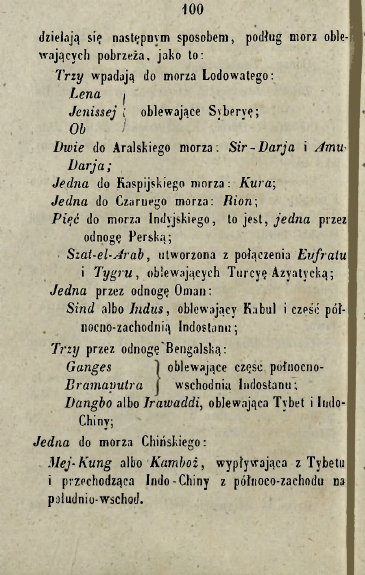 100
dzielają się następnym sposobem, podług morz oble-
wających pobrzeża, jako to:
Trzy wpadają do morza Lodowatego:
Lena
Jenissej } oblewające Syberyę;
Ob
Dwie do Aralskiego morza: Sir-Darja i Amu-
Darja;
Jedna do Kaspijskiego morza: Kura;
Jedna do Czarnego morza: Rion;
Pięć do morza Indyjskiego, to jest, jedna przez
odnogę Perską;
Szat-el-Arab, utworzona z połączenia Eufratu
i Tygru, oblewających Turcyę Azyatycką;
Jedna przez odnogę Oman:
Sind albo Indus, oblewający Kabul i cześć pół-
nocno-zachodnią Indostanu;
Trzy przez odnogę Bengalską:
Ganges } oblewające część połnocno-
Bramaputra } wschodnia Indostanu;
Dangbo albo Irawaddi, oblewająca Tybet i Indo-
Chiny;
Jedna do morza Chińskiego:
Mej-Kung albo Kamboż, wypływająca z Tybetu
i przechodząca Indo-Chiny z północo-zachodu na
południo-wschod.